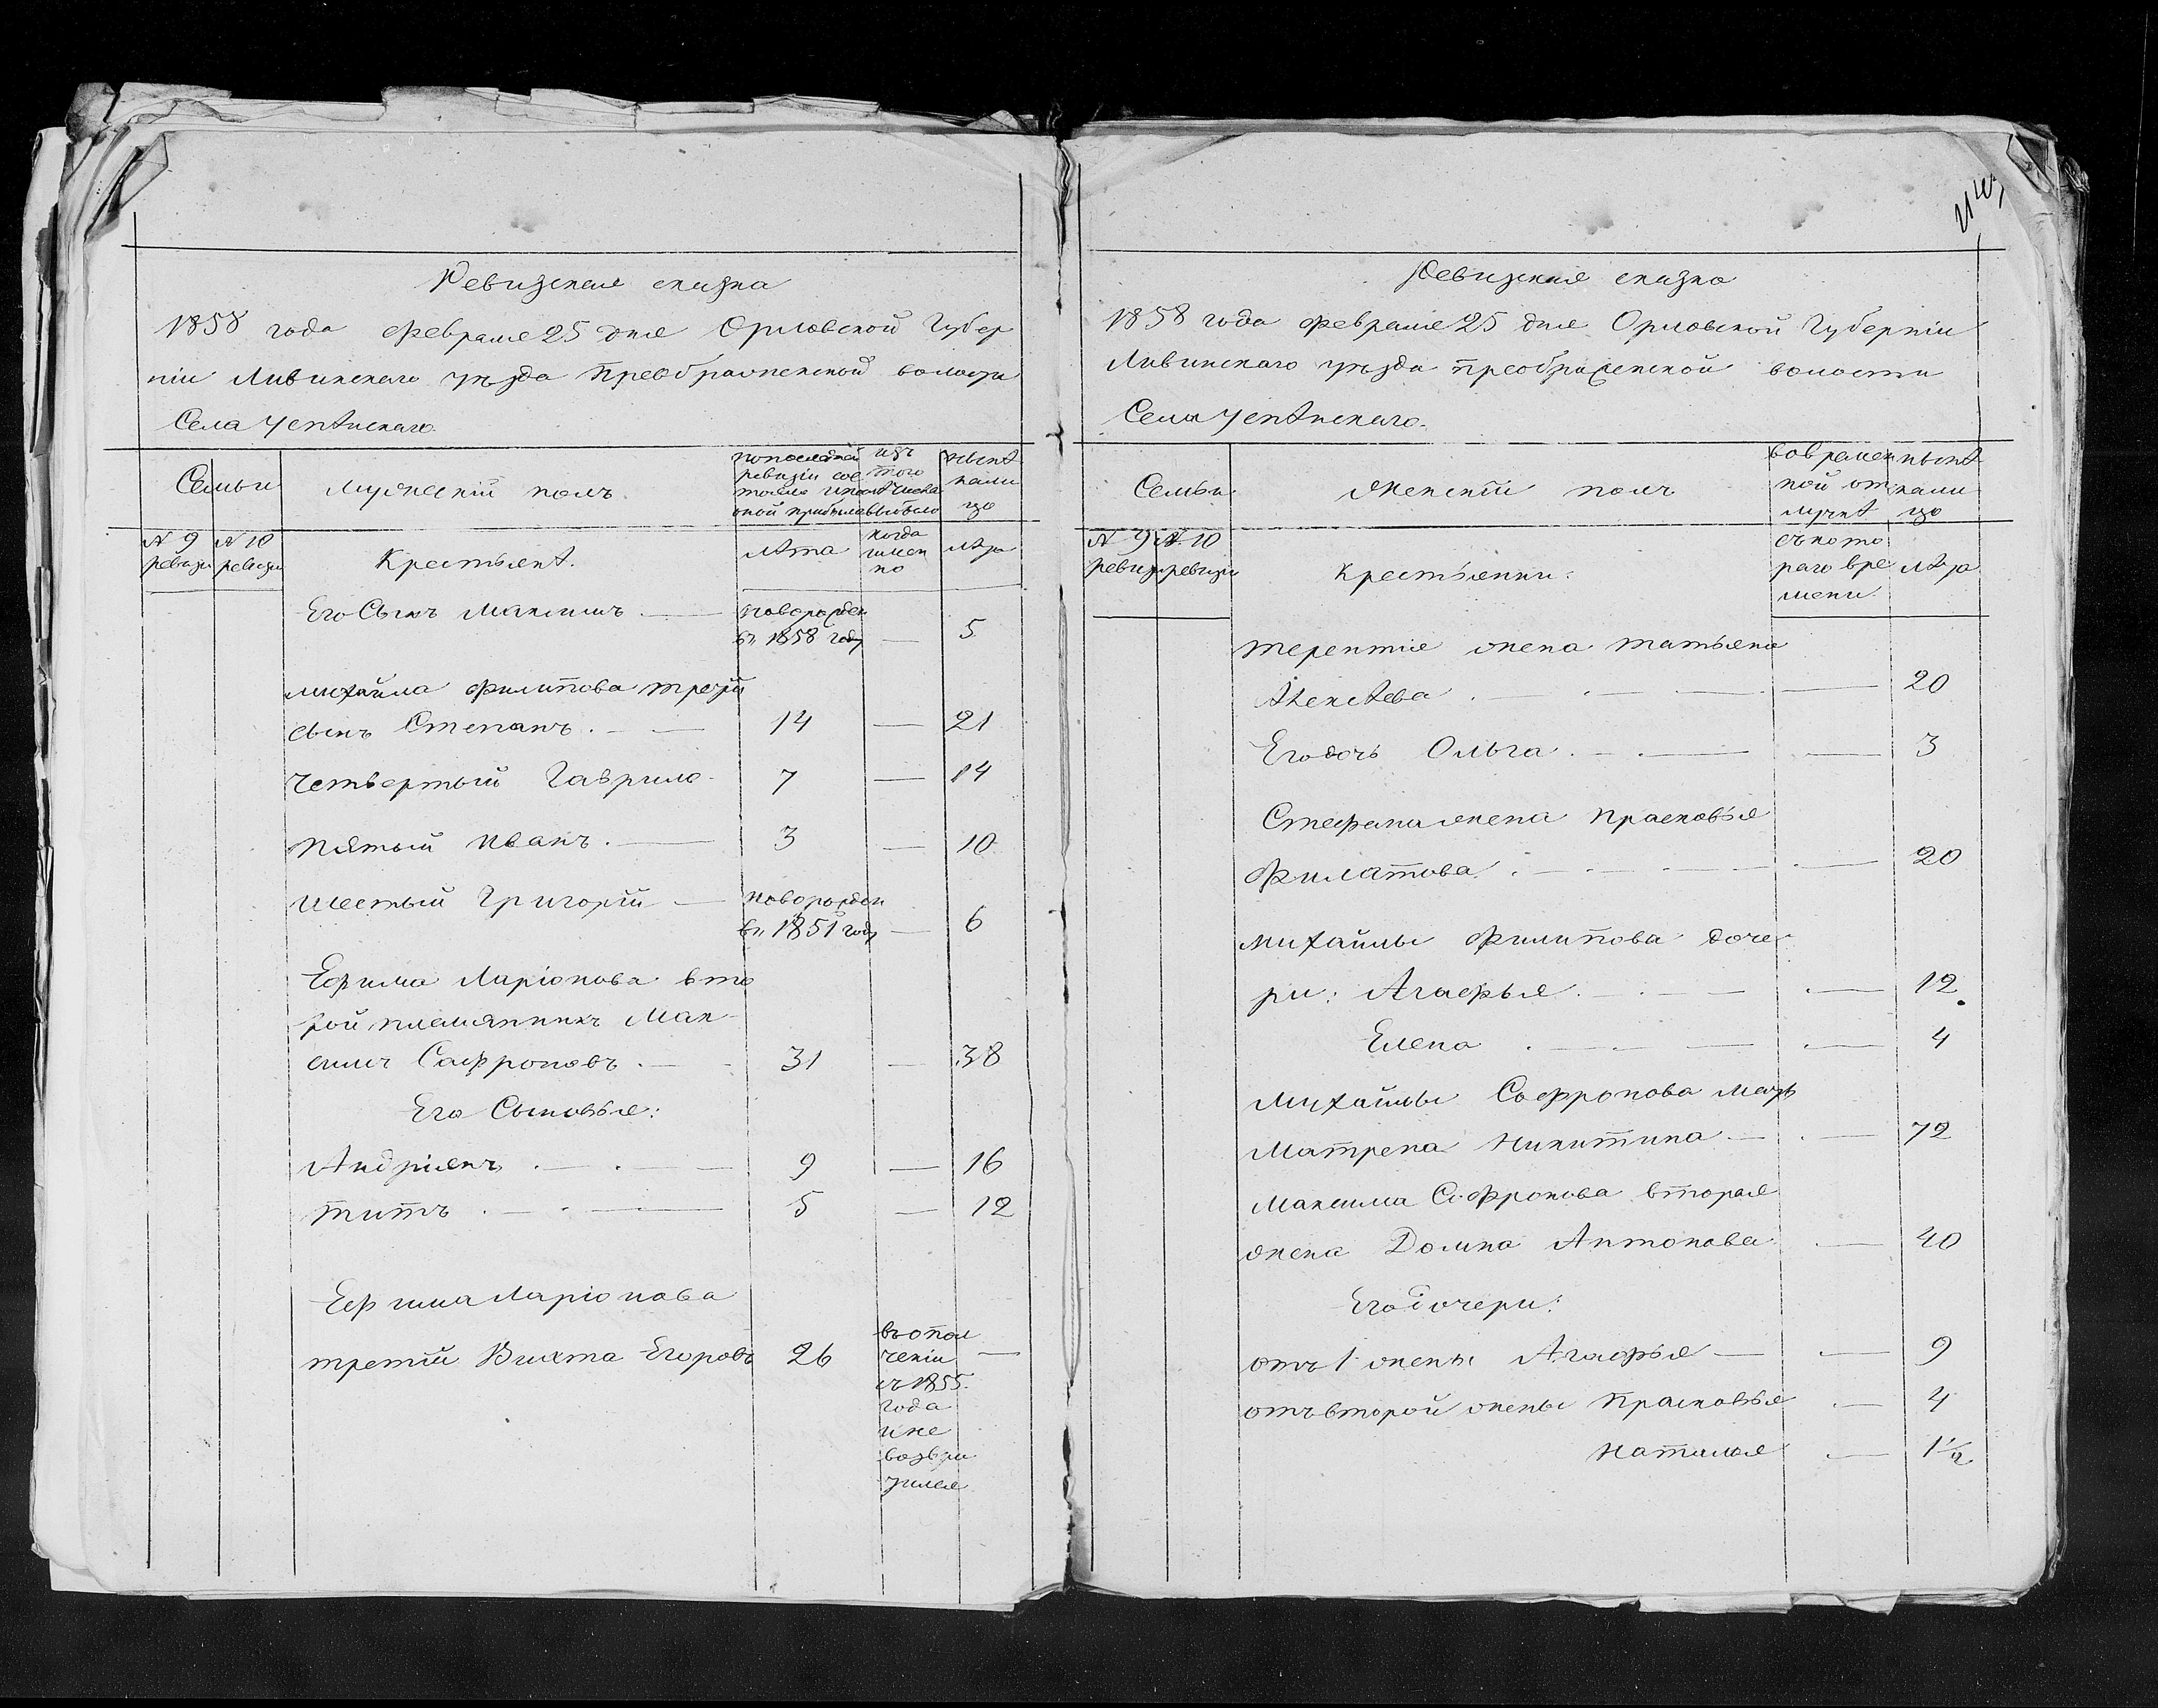 Ревизская сказка
1858 года февраля 25 дня Орловской Губер
ніи Ливинскаго уѣзда Преображенской волости
Села Успѣнскаго.
Семьи
Мужескій полъ.
по последней
ревизіи сос
тояло и посл
оной прибыло
изъ
того
числа
выбыло
нынѣ
на ли
цо
№ 9
ревизіи
№ 10
ревизіи
Крестьянѣ.
лѣта
когда
имен
но
лѣта
Его Сынъ Максимъ. — новорожден
въ 1858 году — 5
Михайла Филипова третій
сынъ Степанъ. — 14 — 21
Четвертый Гаврила 7 — 14
Пятый Иванъ. — 3 — 10
Шестый Григорій — новорожден
въ 1851 году — 6
Ефима Ларіонова вто
рой племянникъ Мак
симъ Сафроновъ. — 31 — 38
Его Сыновья:
Андріянъ . — 9 — 16
Титъ . — 5 — 12
Ефима Ларіонова
третій Егоровъ 26
въ опол
ченіи —
съ 1855.
года
и не
возвра
тился
Ревизская сказка
1858 года февраля 25 дня Орловской Губерніи
Ливинскаго уѣзда Преображенской волости
Села Успѣнскаго.
Семьи
Женскій полъ
во времен
ной от
лучкѣ
нынѣ
на ли
цо
№ 9
ревизіи
№ 10
ревизіи
Крестьянки:
съ кото
раго вре
мени
лѣта
Терентія жена Татьяна
Алексѣева . — — 20
Его дочь Ольга . — — 3
Стефана жена Прасковья
Филатова . — — 20
Михайлы Филипова доче
ри: Агафья . — — 12
Елена . — — 4
Михайлы Софронова мать
Матрена Никитина — — 72
Максима Софронова вторая
жена Домна Антонова — 40
Его дочери:
отъ 1 жены Агафья — — 9
отъ второй жены Прасковья — 4
Наталья — 1½